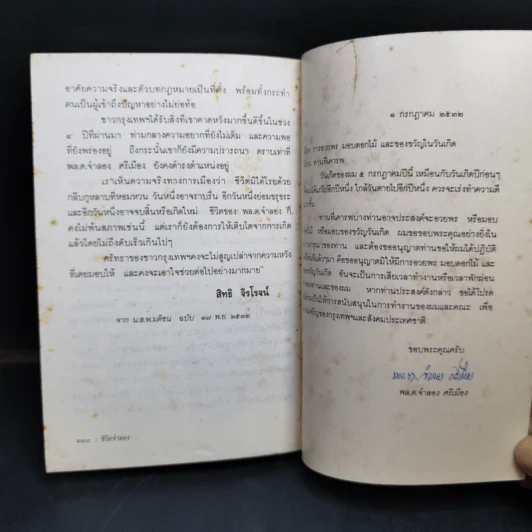 อาศัยความจริงและตัวบทกฎหมายเป็นที่ตั้ง พร้อมทั้งกระทำ
ตนเป็นผู้เข้าถึงปัญหาอย่างไม่ย่อท้อ
ชาวกรุงเทพฯได้รับสิ่งที่เขาคาดหวังมากขึ้นดีขึ้นในช่วง
๔ ปีที่ผ่านมา ท่ามกลางความอยากที่ยังไม่เต็ม และความพอ
ที่ยังพร่องอยู่ ถึงกระนั้นเขาก็ยังมีความปรารถนา ตราบเท่าที่
พล.ต.จำลอง ศรีเมือง ยังคงดำรงตำแหน่งอยู่
เราเห็นความจริงทางการเมืองว่า ชีวิตมิได้โรยด้วย
กลีบกุหลาบที่หอมหวน วันหนึ่งอาจราบรื่น อีกวันหนึ่งย่อมขรุขระ
และอีกวันหนึ่งอาจจบสิ้นหรือเกิดใหม่ ชีวิตของ พล.ต.จำลอง ก็
คงไม่พ้นสภาพเช่นนี้ แต่เราก็ยังต้องการให้เติบโตจากการเกิด
แล้วโดยไม่ถึงดับเร็วเกินไปๆ
ศรัทธาของชาวกรุงเทพฯคงจะไม่สูญเปล่าจากความหวัง
ที่เคยมอบให้ และคงจะเอาใจช่วยต่อไปอย่างมากมาย"
สิทธิ จิรโรจน์
จาก น.ส.พ.มติชน ฉบับ ๑๗ พ.ย. ๒๕๓๒
/ ชีวิตจำลอง
๑ กรกฎาคม ๒๕๓๒
การอวยพร มอบดอกไม้ และของขวัญในวันเกิด
ท่านที่เคารพ
วันเกิดของผม ๕ กรกฎาคมปีนี้ เหมือนกับวันเกิดปีก่อนๆ
ได้แก่ไปอีกปีหนึ่ง ใกล้วันตายไปอีกปีหนึ่ง ควรจะเร่งทำความดี
ท่านที่เคารพบางท่านอาจประสงค์จะอวยพร หรือมอบ
หรือมอบของขวัญวันเกิด ผมขอขอบพระคุณอย่างยิ่งใน
กรุณาของท่าน และต้องขออนุญาตท่านขอให้ผมได้ปฏิบัติ
ที่แล้วมา คือขออนุญาตมิให้มีการอวยพร มอบดอกไม้ และ
วันเกิด อันจะเป็นการเสียเวลาทำงานหรือเวลาพักผ่อน
และของผม หากท่านประสงค์ดังกล่าว ขอได้โปรด
เป็นให้การสนับสนุนในการทำงานของผมและคณะ เพื่อ
เจริญของกรุงเทพฯและสังคมประเทศชาติ
ขอบพระคุณครับ
พล.ต.จำลอง ศรีเมือง